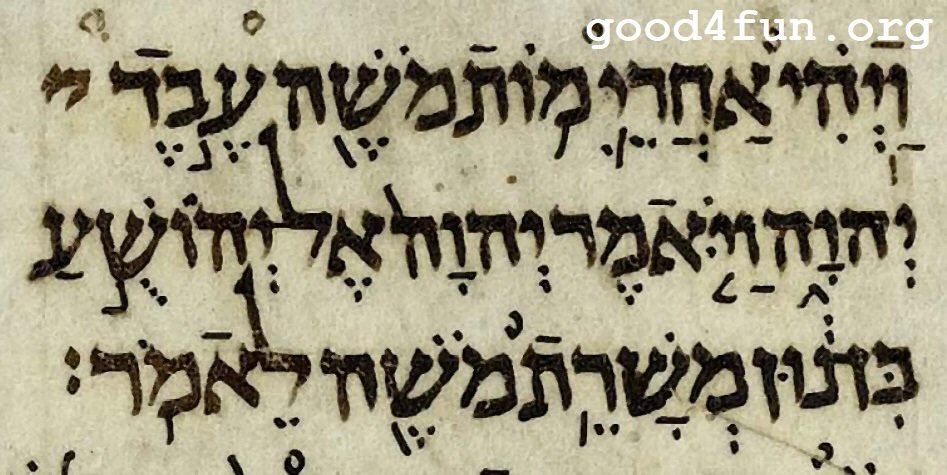 good4fun.org
וַיְהִ֗י אַחֲרֵ֛י מ֥וֹת מֹשֶׁ֖ה עֶ֣בֶד י
יְהוָ֑ה וַיֹּ֤אמֶר יְהוָה֙ אֶל־יְהוֹשֻׁ֣עַ
בִּן־נ֔וּן מְשָׁרֵ֥ת מֹשֶׁ֖ה לֵאמֹֽר׃